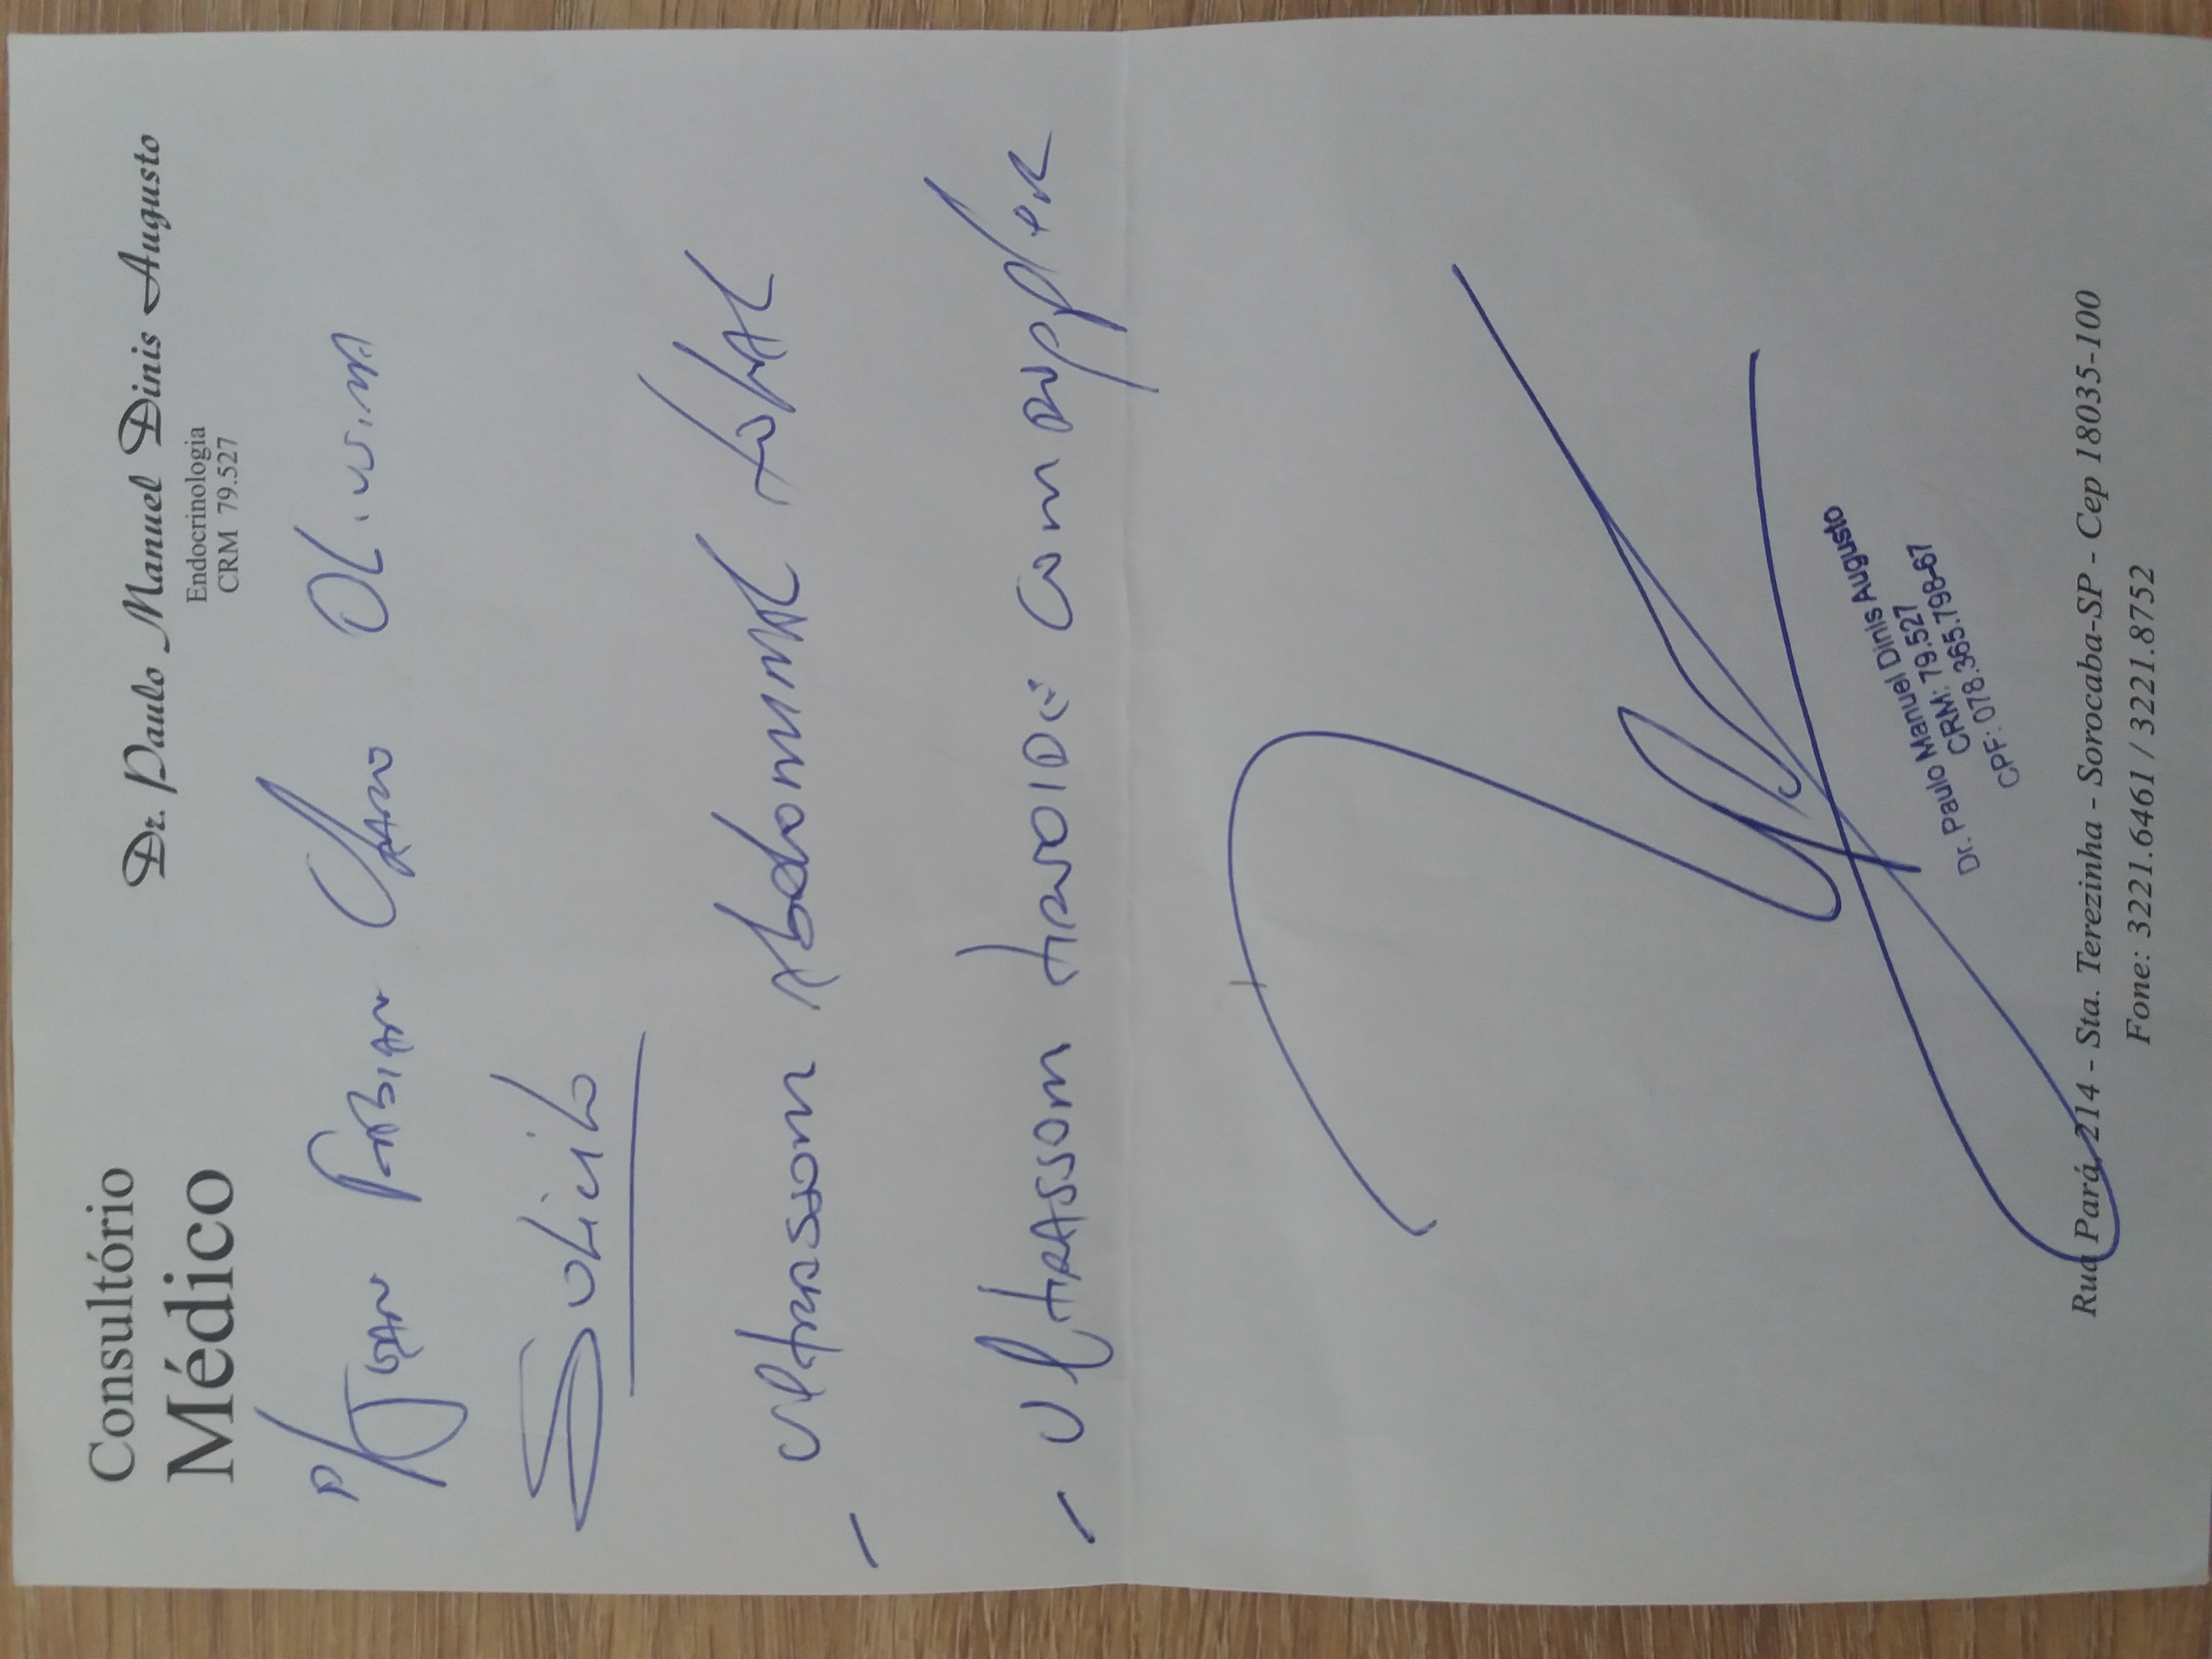 Consultório
Médico
Dr. Paulo Manuel Dinis Augusto
Endocrinologia
CRM 79.527
P/ Juan Fabian Claro Oliveira
Solicito
- Ultrassom Abdominal total
- Ultrassom tiroide com doppler
Dr. Paulo Manuel Dinis Augusto
CRM: 79.527
CPF: 078.365.798-67
Rua Pará, 214 - Sta. Terezinha - Sorocaba-SP - Cep 18035-100
Fone: 3221.6461 / 3221.8752